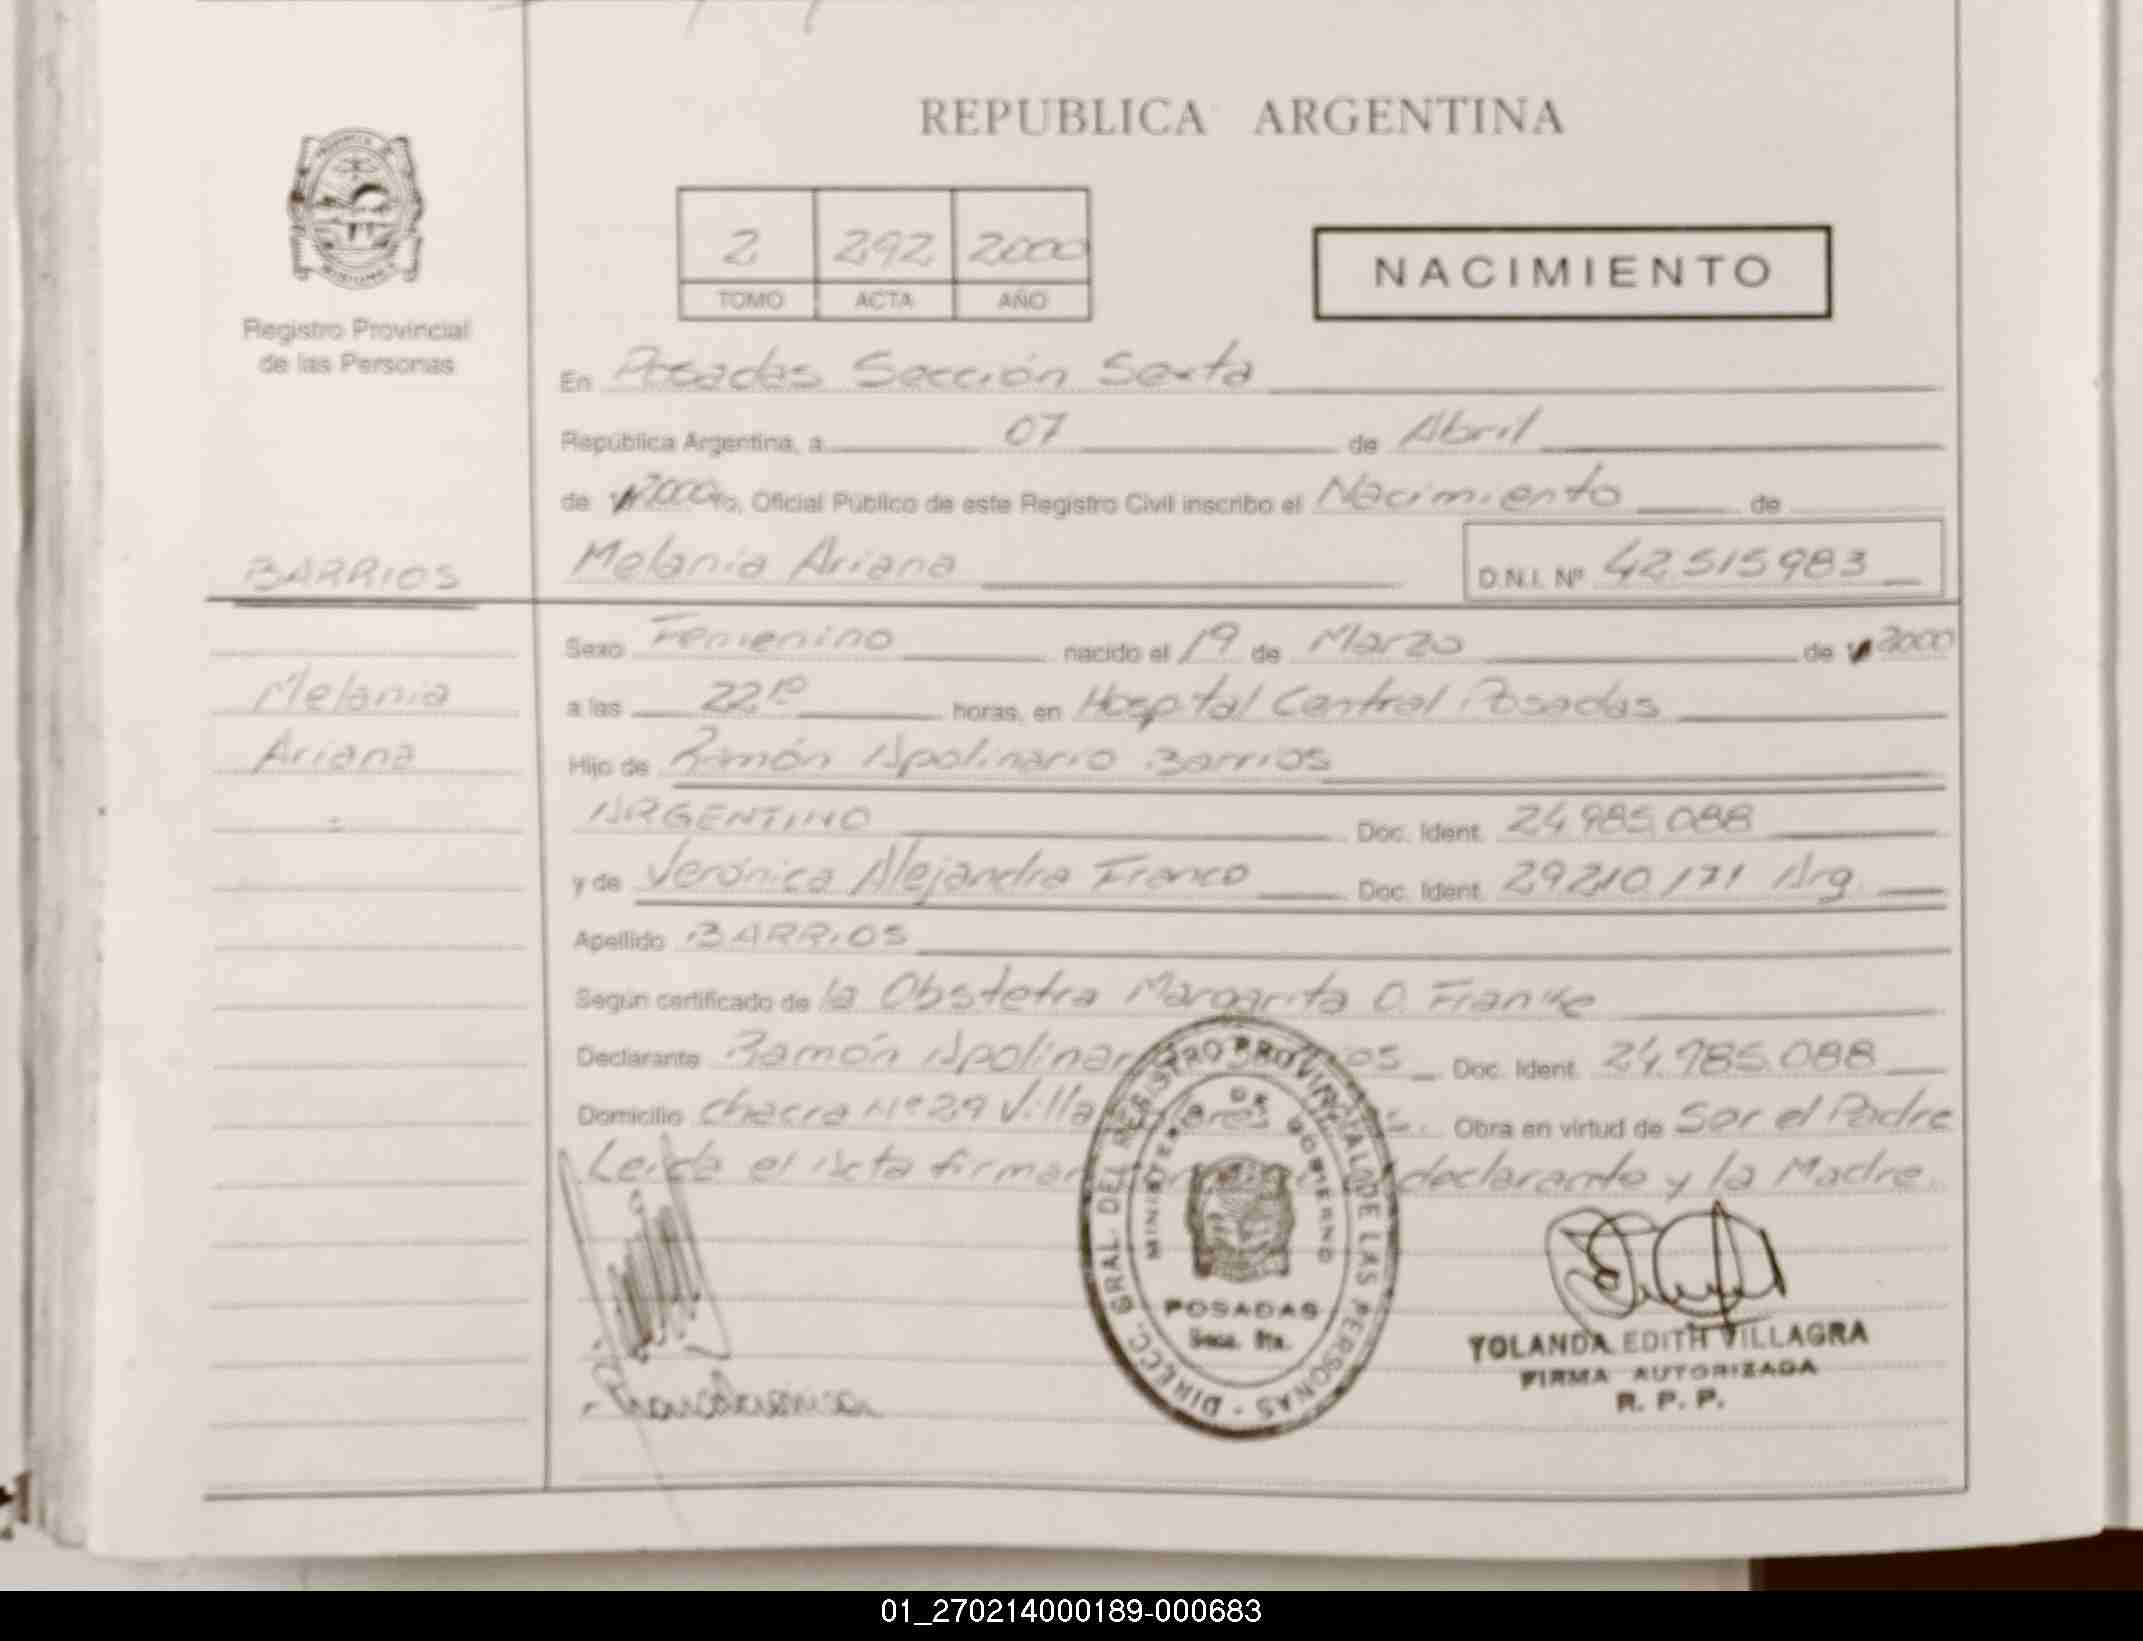 REPUBLICA ARGENTINA
2 292 2000
TOMO ACTA AÑO
NACIMIENTO
Registro Provincial
de las Personas
En Posadas Sección Sexta
República Argentina, a 07 de Abril
de 2000 Yo, Oficial Público de este Registro Civil inscribo el Nacimiento de
BARRIOS Melania Ariana D.N.I. Nº 42.515983
Sexo Femenino nacido el 19 de Marzo de 2000
Melania a las 22 10 horas, en Hospital Central Posadas
Ariana Hijo de Ramón Apolinario Barrios
ARGENTINO Doc. Ident. 24.985.088
y de Verónica Alejandra Franco Doc. Ident. 29.210.171 Arg
Apellido BARRIOS
Según certificado de la Obstetra Margarita O. Franke
Declarante Ramón Doc. Ident. 24.985.088
Domicilio Chacra Nº 29 Villa Obra en virtud de Ser el Padre
Leída el Acta declarante y la Madre.
DIRECC. GRAL. DEL REGISTRO PROVINCIAL DE LAS PERSONAS
MINISTERIO DE GOBIERNO
POSADAS
Secc. 6ta.
YOLANDA EDITH VILLAGRA
FIRMA AUTORIZADA
R. P. P.
01_270214000189-000683